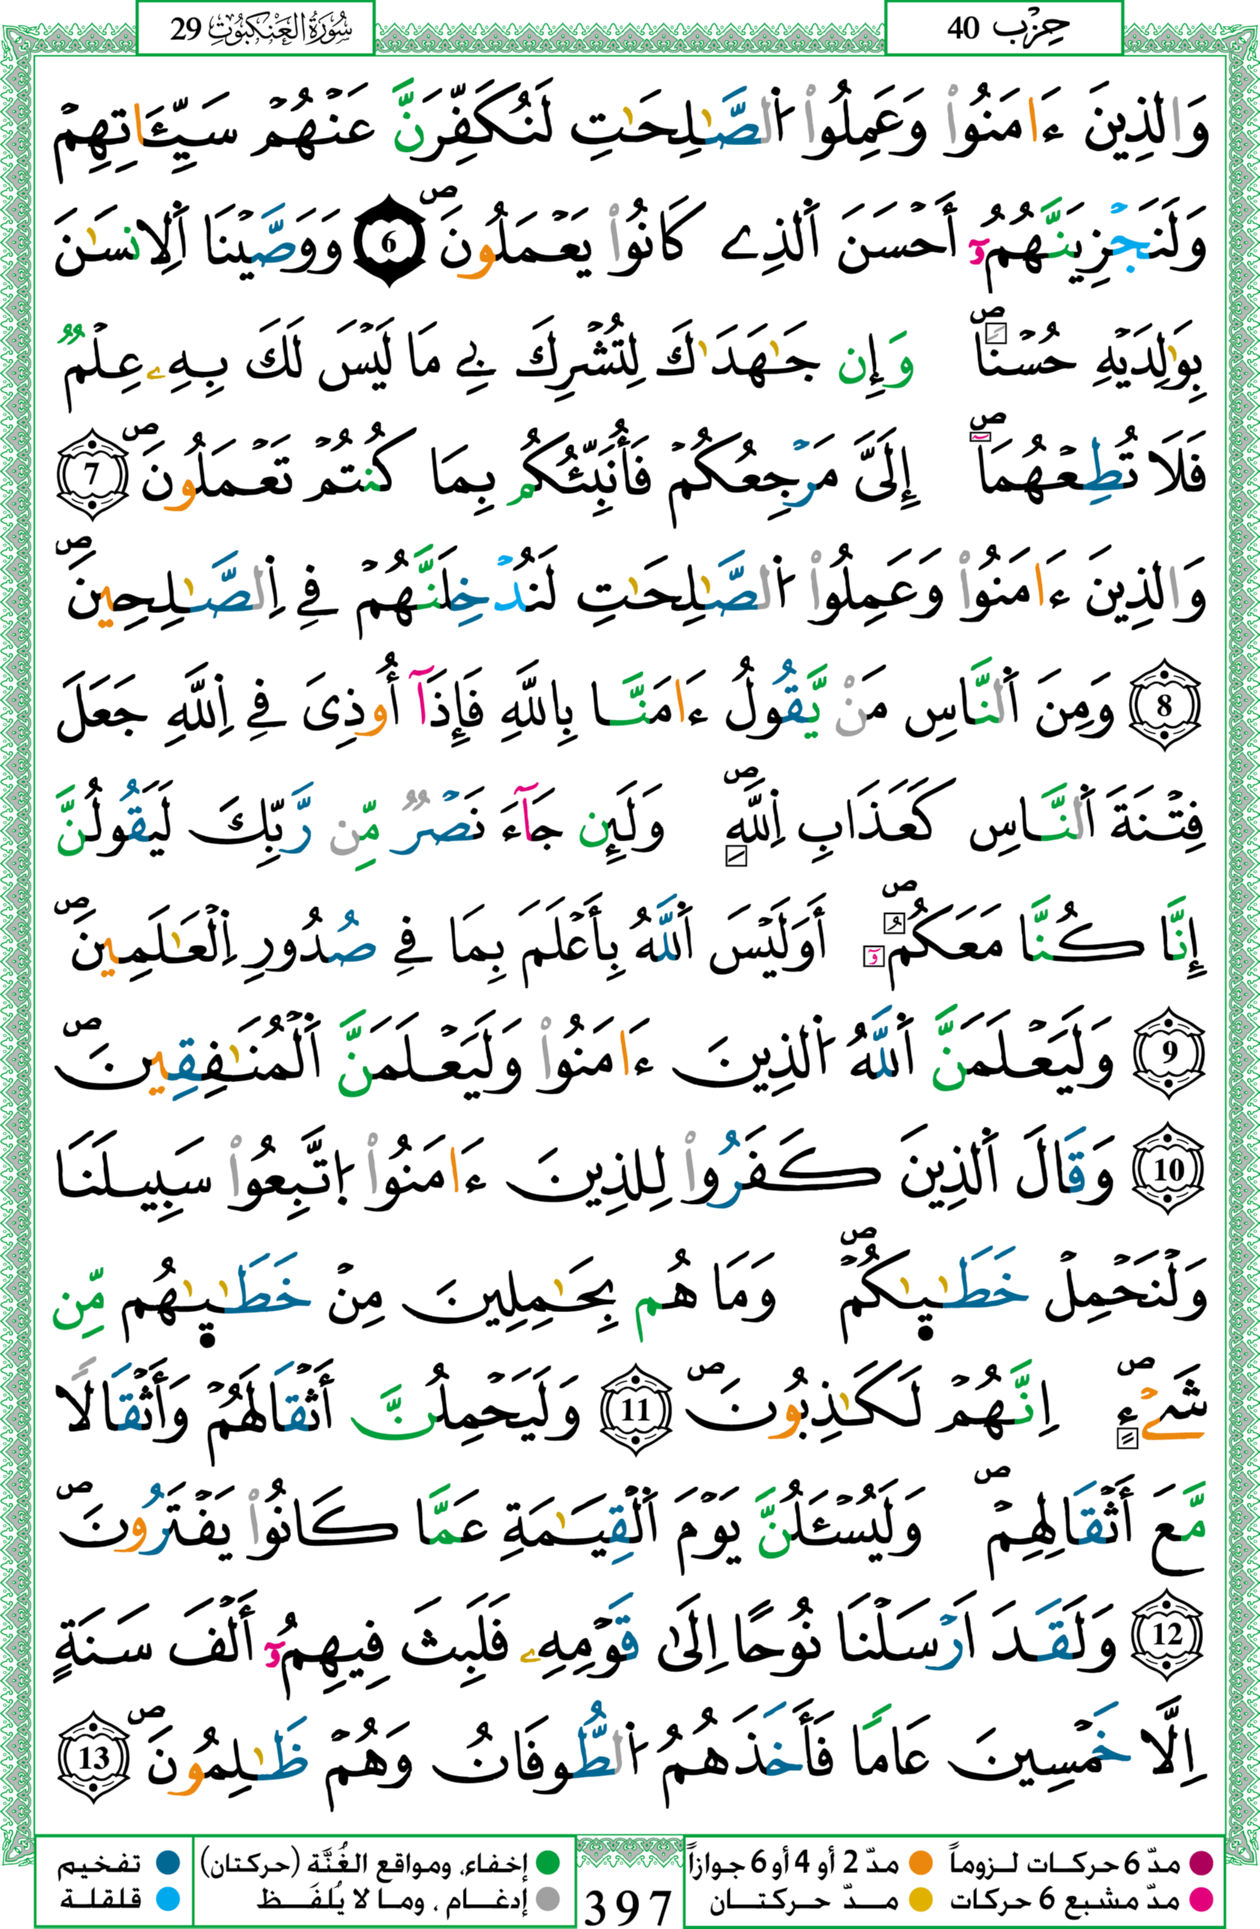 سُورَةُ الْعَنكَبُوتِ 29
حِزْب 40
وَالذِينَ ءَامَنُواْ وَعَمِلُواْ اُلصَّٰلِحَٰتِ لَنُكَفِّرَنَّ عَنْهُمْ سَيِّـَٔاتِهِمْ
وَلَنَجْزِيَنَّهُمُۥٓ أَحْسَنَ اَلذِے كَانُواْ يَعْمَلُونَۖ 6 وَوَصَّيْنَا اَلِانسَٰنَ
بِوَٰلِدَيْهِ حُسْناٗۖ وَإِن جَٰهَدَٰكَ لِتُشْرِكَ بِے مَا لَيْسَ لَكَ بِهِۦ عِلْمٞ
فَلَا تُطِعْهُمَآۖ إِلَيَّ مَرْجِعُكُمْ فَأُنَبِّئُكُم بِمَا كُنتُمْ تَعْمَلُونَۖ 7
وَالذِينَ ءَامَنُواْ وَعَمِلُواْ اُلصَّٰلِحَٰتِ لَنُدْخِلَنَّهُمْ فِے اِلصَّٰلِحِينَۖ
8 وَمِنَ اَلنَّاسِ مَنْ يَّقُولُ ءَامَنَّا بِاللَّهِ فَإِذَآ أُوذِيَ فِے اِللَّهِ جَعَلَ
فِتْنَةَ اَلنَّاسِ كَعَذَابِ اِللَّهِۖ وَلَئِن جَآءَ نَصْرٞ مِّن رَّبِّكَ لَيَقُولُنَّ
إِنَّا كُنَّا مَعَكُمُۥٓۖ أَوَلَيْسَ اَللَّهُ بِأَعْلَمَ بِمَا فِے صُدُورِ اِلْعَٰلَمِينَۖ
9 وَلَيَعْلَمَنَّ اَللَّهُ اُلذِينَ ءَامَنُواْ وَلَيَعْلَمَنَّ اَلْمُنَٰفِقِينَۖ
10 وَقَالَ اَلذِينَ كَفَرُواْ لِلذِينَ ءَامَنُواْ اُتَّبِعُواْ سَبِيلَنَا
وَلْنَحْمِلْ خَطَٰيَٰكُمْۖ وَمَا هُم بِحَٰمِلِينَ مِنْ خَطَٰيَٰهُم مِّن
شَےْءٍۖ اِنَّهُمْ لَكَٰذِبُونَۖ 11 وَلَيَحْمِلُنَّ أَثْقَالَهُمْ وَأَثْقَالاٗ
مَّعَ أَثْقَالِهِمْۖ وَلَيُسْـَٔلُنَّ يَوْمَ اَلْقِيَٰمَةِ عَمَّا كَانُواْ يَفْتَرُونَۖ
12 وَلَقَدَ اَرْسَلْنَا نُوحًا اِلَىٰ قَوْمِهِۦ فَلَبِثَ فِيهِمُۥٓ أَلْفَ سَنَةٍ
اِلَّا خَمْسِينَ عَامًا فَأَخَذَهُمُ اُلطُّوفَانُ وَهُمْ ظَٰلِمُونَۖ 13
مدّ 6 حركات لـزوماً مدّ 2 أو 4 أو 6 جوازاً إخفاء، ومواقع الغُنَّة (حركتان) تفخيم
مدّ مشبع 6 حركات مـدّ حركتـان إدغـام ، ومـا لا يُلفَـظ قلقلة
397